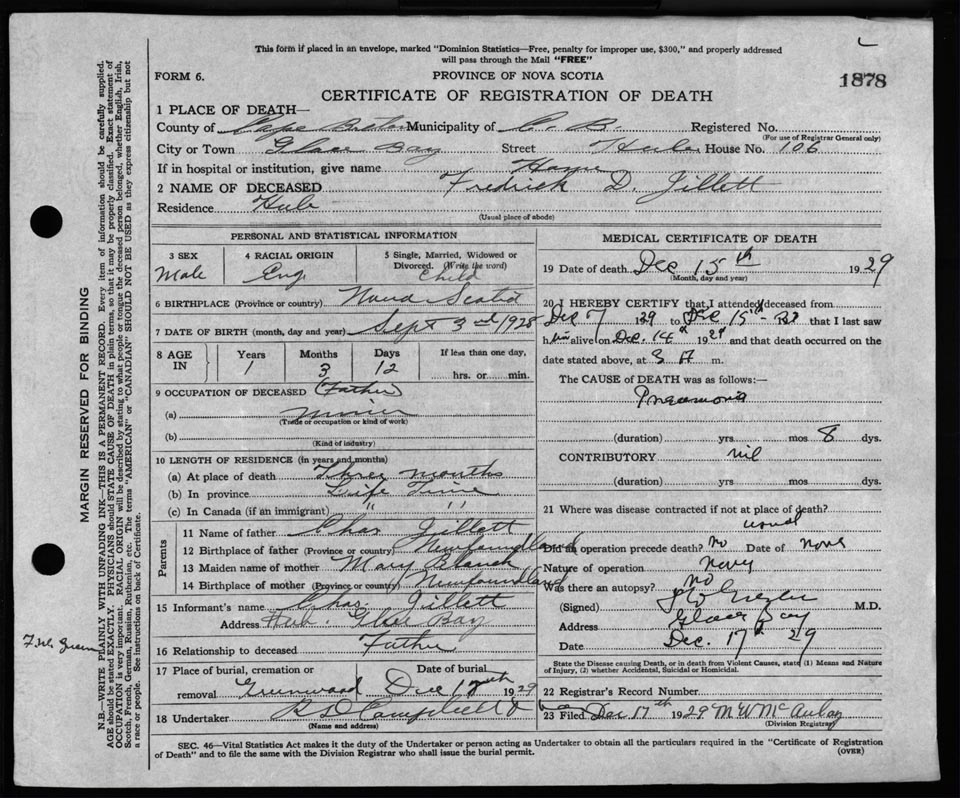 This form if placed in an envelope, marked "Dominion Statistics—Free, penalty for improper use, $300," and properly addressed
will pass through the Mail "FREE"
FORM 6.
PROVINCE OF NOVA SCOTIA
1878
CERTIFICATE OF REGISTRATION OF DEATH
1 PLACE OF DEATH—
County of Cape Breton Municipality of C. B. Registered No.
(For use of Registrar General only)
City or Town Glace Bay Street Hub House No. 106
If in hospital or institution, give name Home
2 NAME OF DECEASED Fredrick D. Jillett
Residence Hub
(Usual place of abode)
PERSONAL AND STATISTICAL INFORMATION
3 SEX 4 RACIAL ORIGIN 5 Single, Married, Widowed or
Divorced. (Write the word)
Male Eng Child
6 BIRTHPLACE (Province or country) Nova Scotia
7 DATE OF BIRTH (month, day and year) Sept 3nd 1928
8 AGE IN Years Months Days If less than one day,
1 3 12 hrs. or min.
9 OCCUPATION OF DECEASED (Father)
(a) Miner
(Trade or occupation or kind of work)
(b)
(Kind of industry)
10 LENGTH OF RESIDENCE (in years and months)
(a) At place of death Three months
(b) In province Life Time
(c) In Canada (if an immigrant) " "
Parents
11 Name of father Chas Jillett
12 Birthplace of father (Province or country) Newfoundland
13 Maiden name of mother Mary Blanch
14 Birthplace of mother (Province or country) Newfoundland
15 Informant's name Chas. Jillett
Address Hub. Glace Bay
16 Relationship to deceased Father
17 Place of burial, cremation or Date of burial
removal Greenwood Dec 17th 1929
18 Undertaker Campbell
(Name and address)
MEDICAL CERTIFICATE OF DEATH
19 Date of death Dec 15th 1929
(Month, day and year)
20 I HEREBY CERTIFY that I attended deceased from
Dec 7 1929 to Dec 15th that I last saw
him alive on Dec. 14th 1929 and that death occurred on the
date stated above, at 3 A m.
The CAUSE of DEATH was as follows:—
Pneumonia
(duration) yrs mos 8 dys.
CONTRIBUTORY nil
(duration) yrs. mos. dys.
21 Where was disease contracted if not at place of death?
usual
Did an operation precede death? No Date of None
Nature of operation None
Was there an autopsy? No
(Signed) M.D.
Address Glace Bay
Date Dec. 17th 29
State the Disease causing Death, or in death from Violent Causes, state (1) Means and Nature
of Injury, (2) whether Accidental, Suicidal or Homicidal.
22 Registrar's Record Number
23 Filed Dec 17th 1929 M W McAulay
(Division Registrar)
SEC. 46—Vital Statistics Act makes it the duty of the Undertaker or person acting as Undertaker to obtain all the particulars required in the "Certificate of Registration
of Death" and to file the same with the Division Registrar who shall issue the burial permit.
(OVER)
MARGIN RESERVED FOR BINDING
N.B.—WRITE PLAINLY WITH UNFADING INK—THIS IS A PERMANENT RECORD. Every item of information should be carefully supplied.
AGE should be stated EXACTLY. PHYSICIANS should STATE CAUSE OF DEATH in plain terms, so that it may be properly classified. Exact statement of
OCCUPATION is very important. RACIAL ORIGIN will be described by stating to what people or tongue the deceased person belonged, whether English, Irish,
Scotch, French, German, Russian, Ruthenian, etc. The terms "AMERICAN" or "CANADIAN" SHOULD NOT BE USED as they express citizenship but not
a race or people. See instructions on back of Certificate.